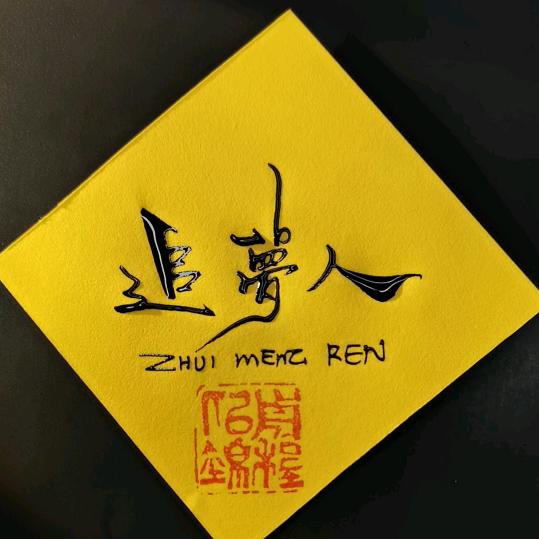 追夢人
ZHUI MENG REN